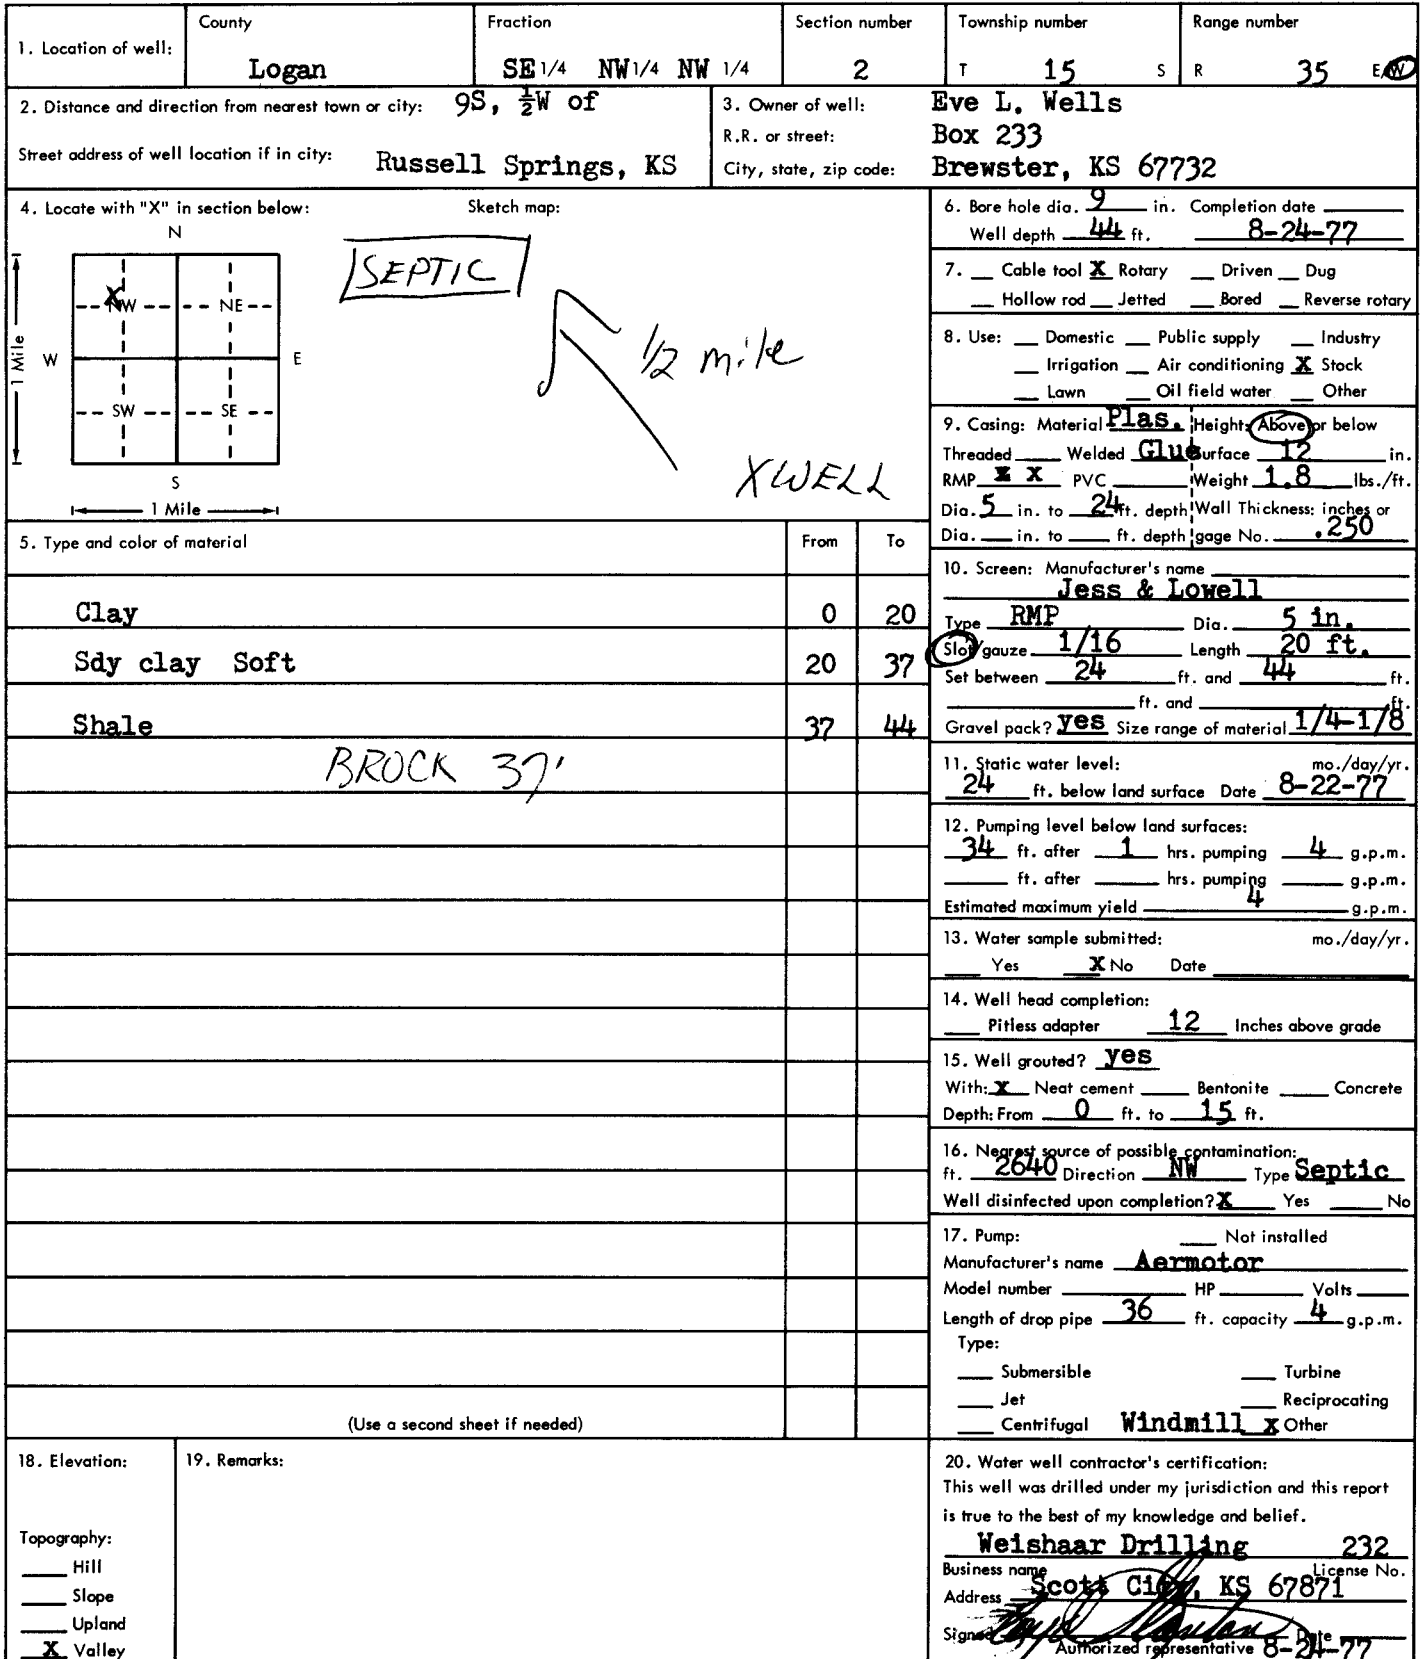 1. Location of well: County Logan Fraction SE 1/4 NW 1/4 NW 1/4 Section number 2 Township number T 15 S Range number R 35 E/W
2. Distance and direction from nearest town or city: 9S, ½W of
Street address of well location if in city: Russell Springs, KS
3. Owner of well: Eve L. Wells
R.R. or street: Box 233
City, state, zip code: Brewster, KS 67732
4. Locate with "X" in section below: Sketch map:
N
X
NW NE
W E
SW SE
S
1 Mile
1 Mile
SEPTIC
1/2 mile
X WELL
5. Type and color of material From To
Clay 0 20
Sdy clay Soft 20 37
Shale 37 44
BROCK 37'
(Use a second sheet if needed)
6. Bore hole dia. 9 in. Completion date
Well depth 44 ft. 8-24-77
7. Cable tool X Rotary Driven Dug
Hollow rod Jetted Bored Reverse rotary
8. Use: Domestic Public supply Industry
Irrigation Air conditioning X Stock
Lawn Oil field water Other
9. Casing: Material Plas. Height: Above or below
Threaded Welded Glue Surface 12 in.
RMP X X PVC Weight 1.8 lbs./ft.
Dia. 5 in. to 24 ft. depth Wall Thickness: inches or
Dia. in. to ft. depth gage No. .250
10. Screen: Manufacturer's name
Jess & Lowell
Type RMP Dia. 5 in.
Slot/gauze 1/16 Length 20 ft.
Set between 24 ft. and 44 ft.
ft. and ft.
Gravel pack? yes Size range of material 1/4-1/8
11. Static water level: mo./day/yr.
24 ft. below land surface Date 8-22-77
12. Pumping level below land surfaces:
34 ft. after 1 hrs. pumping 4 g.p.m.
ft. after hrs. pumping g.p.m.
Estimated maximum yield 4 g.p.m.
13. Water sample submitted: mo./day/yr.
Yes X No Date
14. Well head completion:
Pitless adapter 12 Inches above grade
15. Well grouted? yes
With: X Neat cement Bentonite Concrete
Depth: From 0 ft. to 15 ft.
16. Nearest source of possible contamination:
ft. 2640 Direction NW Type Septic
Well disinfected upon completion? X Yes No
17. Pump: Not installed
Manufacturer's name Aermotor
Model number HP Volts
Length of drop pipe 36 ft. capacity 4 g.p.m.
Type:
Submersible Turbine
Jet Reciprocating
Centrifugal Windmill X Other
18. Elevation:
Topography:
Hill
Slope
Upland
X Valley
19. Remarks:
20. Water well contractor's certification:
This well was drilled under my jurisdiction and this report
is true to the best of my knowledge and belief.
Weishaar Drilling 232
Business name License No.
Address Scott City, KS 67871
Signed Date
Authorized representative 8-24-77